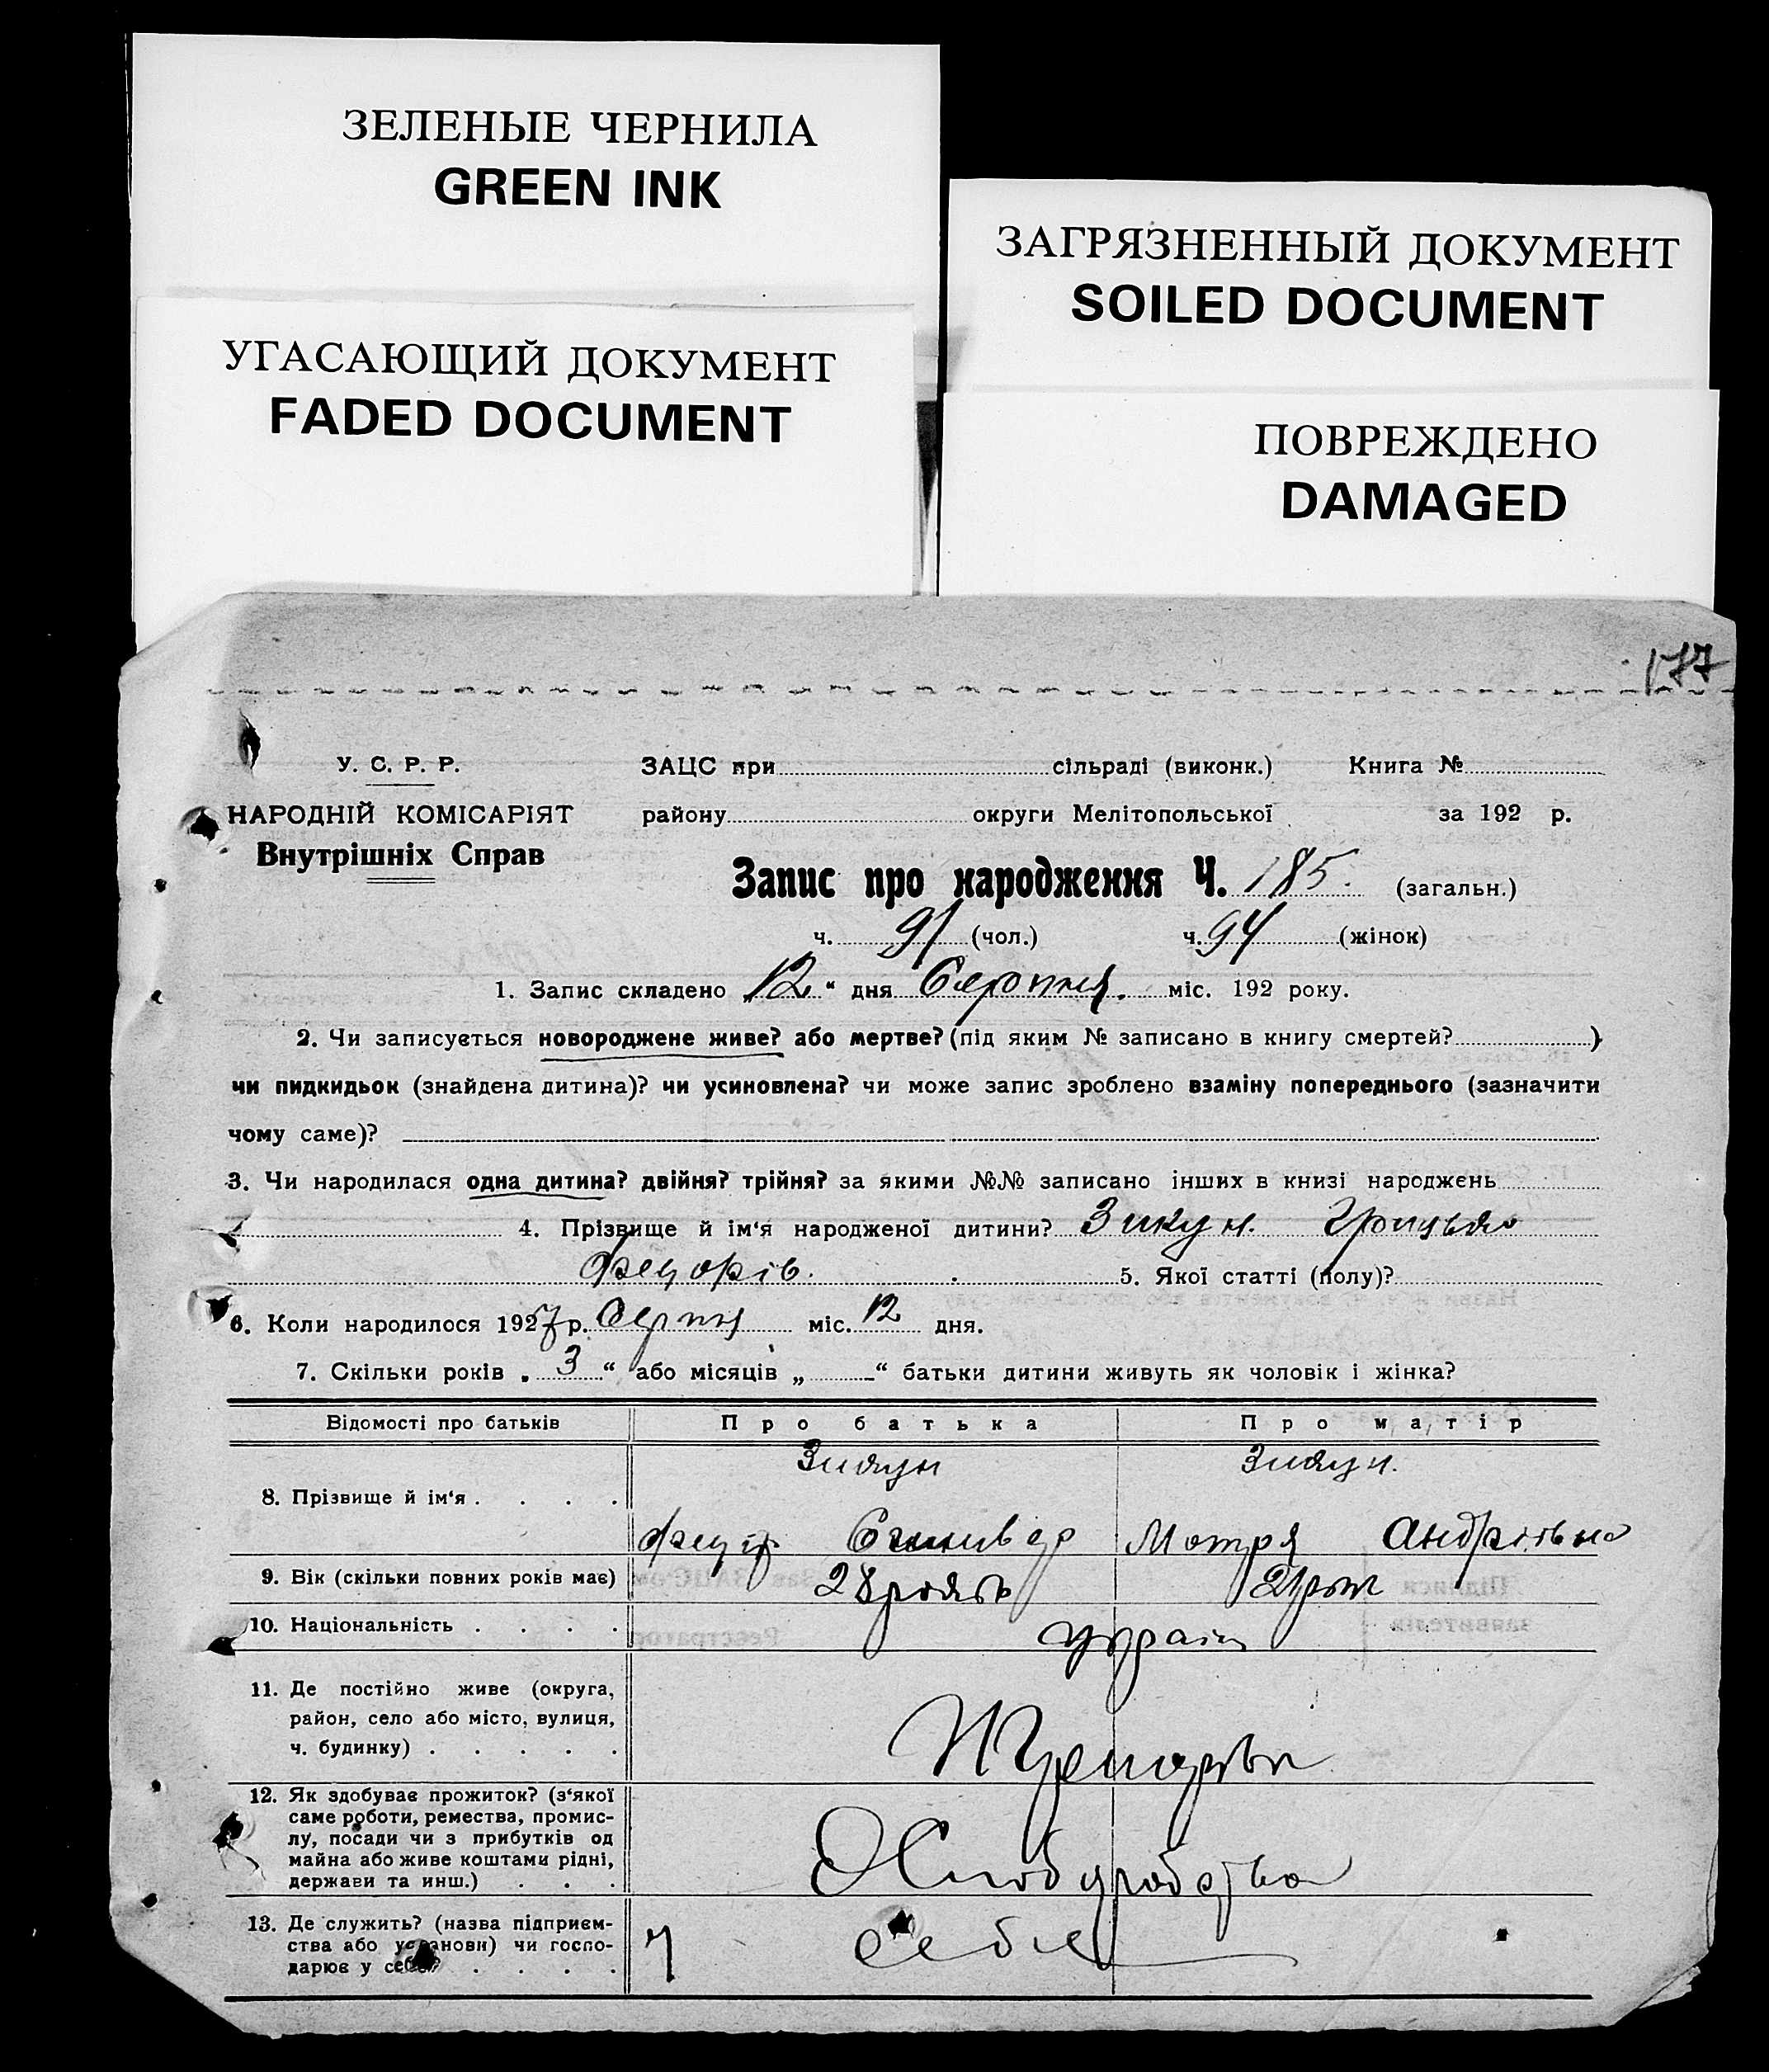 ЗЕЛЕНЫЕ ЧЕРНИЛА
GREEN INK
ЗАГРЯЗНЕННЫЙ ДОКУМЕНТ
SOILED DOCUMENT
УГАСАЮЩИЙ ДОКУМЕНТ
FADED DOCUMENT
ПОВРЕЖДЕНО
DAMAGED
177
У. С. Р. Р. ЗАЦС при сільраді (виконк.) Книга №
НАРОДНІЙ КОМІСАРІЯТ району округи Мелітопольської за 192 р.
Внутрішніх Справ
Запис про народження Ч. 185. (загальн.)
ч. 91 (чол.) ч. 94 (жінок)
1. Запис складено „12“ дня Серпня. міс. 192 року.
2. Чи записується новороджене живе? або мертве? (під яким № записано в книгу смертей? )
чи пидкидьок (знайдена дитина)? чи усиновлена? чи може запис зроблено взаміну попереднього (зазначити
чому саме)?
3. Чи народилася одна дитина? двійня? трійня? за якими №№ записано інших в книзі народжень
4. Прізвище й ім‘я народженої дитини? Зикун.
5. Якої статті (полу)?
6. Коли народилося 1927 р. Серпня міс. 12 дня.
7. Скільки років „ 3 “ або місяців „ “ батьки дитини живуть як чоловік і жінка?
Відомості про батьків Про батька Про матір
Зикун Зикун.
8. Прізвище й ім‘я . . . .
Мотря
9. Вік (скільки повних років має) 28 років 21 рок
10. Національність . . . . україн
11. Де постійно живе (округа,
район, село або місто, вулиця,
ч. будинку) . . . . .
12. Як здобуває прожиток? (з‘якої
саме роботи, ремества, промис-
лу, посади чи з прибутків од
майна або живе коштами рідні,
держави та инш.) . . .
Хліборобство
13. Де служить? (назва підприєм-
ства або установи) чи госпо-
дарює у себе? . . . .
У себе